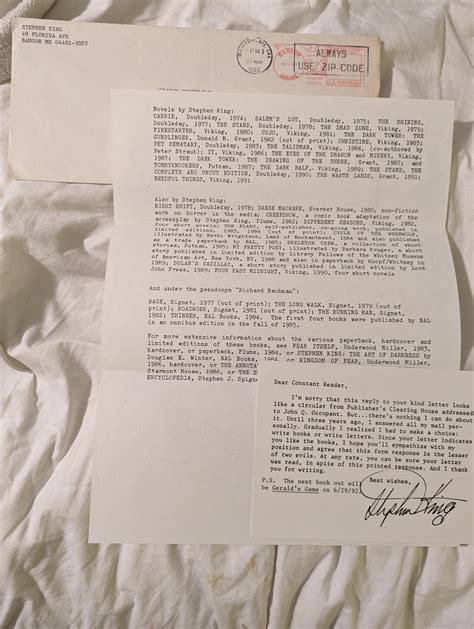 STEPHEN KING
49 FLORIDA AVE
BANGOR ME 04401-3003
BANGOR
PM
27 MAY
1992
BANGOR
MAINE
ALWAYS
USE ZIP CODE
U.S. POSTAGE
Novels by Stephen King:
CARRIE, Doubleday, 1974; SALEM'S LOT, Doubleday, 1975; THE SHINING,
Doubleday, 1977; THE STAND, Doubleday, 1978; THE DEAD ZONE, Viking, 1979;
FIRESTARTER, Viking, 1980; CUJO, Viking, 1981; THE DARK TOWER: THE
GUNSLINGER, Donald M. Grant, 1982 (out of print); CHRISTINE, Viking, 1983;
PET SEMATARY, Doubleday, 1983; THE TALISMAN, Viking, 1984, (co-authored by
Peter Straub); IT, Viking, 1986; THE EYES OF THE DRAGON and MISERY, Viking,
1987; THE DARK TOWER: THE DRAWING OF THE THREE, Grant, 1987; and
TOMMYKNOCKERS, Putnam, 1987; THE DARK HALF, Viking, 1989; THE STAND, THE
COMPLETE AND UNCUT EDITION, Doubleday, 1990; THE WASTE LANDS, Grant, 1991;
NEEDFUL THINGS, Viking, 1991
Also by Stephen King:
NIGHT SHIFT, Doubleday, 1978; DANSE MACABRE, Everest House, 1980, non-fiction
work on horror in the media; CREEPSHOW, a comic book adaptation of the
screenplay by Stephen King, Plume, 1982; DIFFERENT SEASONS, Viking, 1982,
four short novels; THE PLANT, self-published, on-going work, published in
limited editions, 1983, 1984 (out of print); CYCLE OF THE WEREWOLF,
illustrated by Berni Wrightson, Land of Enchantment, 1984 and also published
as a trade paperback by NAL, 1985; SKELETON CREW, a collection of short
stories, Putnam, 1985; MY PRETTY PONY, illustrated by Barbara Kruger, a short
story published in limited edition by Library Fellows of the Whitney Museum
of American Art, New York, NY, 1988 and also in paperback by Knopf/Whitney in
1989; DOLAN'S CADILLAC, a short story published in limited edition by Lord
John Press, 1989; FOUR PAST MIDNIGHT, Viking, 1990, four short novels
And under the pseudonym "Richard Bachman":
RAGE, Signet, 1977 (out of print); THE LONG WALK, Signet, 1979 (out of
print); ROADWORK, Signet, 1981 (out of print); THE RUNNING MAN, Signet,
1982; THINNER, NAL Books, 1984. The first four books were published by NAL
in an omnibus edition in the fall of 1985.
For more extensive information about the various paperback, hardcover and
limited editions of these books, see FEAR ITSELF, Underwood Miller, 1983,
hardcover, or paperback, Plume, 1984, or STEPHEN KING: THE ART OF DARKNESS by
Douglas E. Winter, NAL Books, 1984, or KINGDOM OF FEAR, Underwood Miller,
hardcover, or THE ANNOTA
Starmont House, 1986, or THE S
ENCYCLOPEDIA, Stephen J. Spign
Dear Constant Reader,
I'm sorry that this reply to your kind letter looks
like a circular from Publisher's Clearing House addressed
to John Q. Occupant. But...there's nothing I can do about
it. Until three years ago, I answered all my mail per-
sonally. Gradually I realized I had to make a choice:
write books or write letters. Since your letter indicates
you like the books, I hope you'll sympathize with my
position and agree that this form response is the lesser
of two evils. At any rate, you can be sure your letter
was read, in spite of this printed response. And I thank
you for writing.
Best wishes,
P.S. The next book out will
be Gerald's Game on 6/29/92.
Stephen King